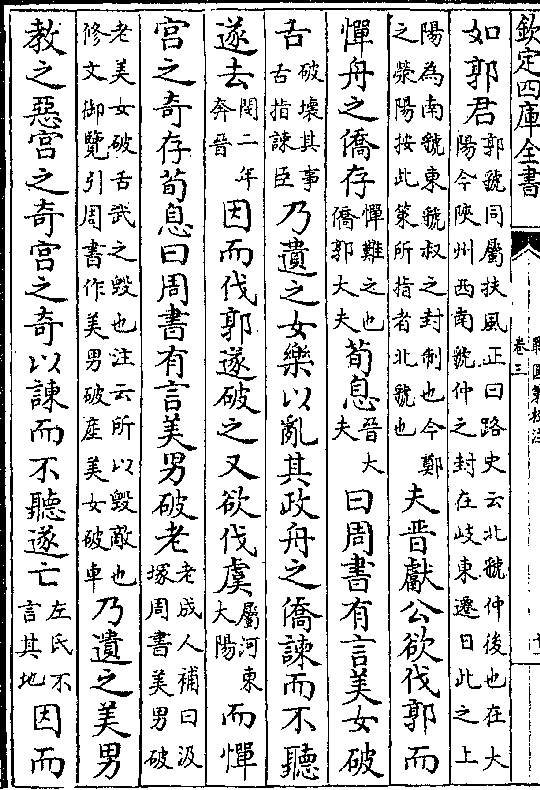 欽定四庫全書
戰國策校注
卷三
十
如郭君郭虢同屬扶風正曰路史云北虢仲後也在大
陽今陜州西南虢仲之封在岐東遷曰此之上
陽為南虢東虢叔之封制也今鄭
之滎陽按此策所指者北虢也夫晉獻公欲伐郭而
憚舟之僑存憚難之也
僑郭大夫荀息晉大
夫曰周書有言美女破
舌破壞其事
舌指諫臣乃遺之女樂以亂其政舟之僑諫而不聽
遂去閔二年
奔晉因而伐郭遂破之又欲伐虞屬河東
大陽而憚
宮之奇存荀息曰周書有言美男破老老成人補曰汲
塚周書美男破
老美女破舌武之毀也注云所以毀敵也
修文御覽引周書作美男破產美女破車乃遺之美男
教之惡宮之奇宮之奇以諫而不聽遂亡左氏不
言其地因而